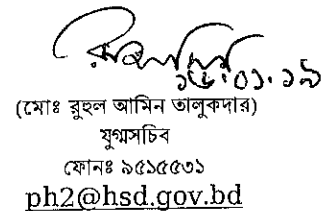 ১৫.০১.১৯
(মোঃ রুহুল আমিন তালুকদার)
যুগ্মসচিব
ফোনঃ ৯৫১৫৫৩১
ph2@hsd.gov.bd